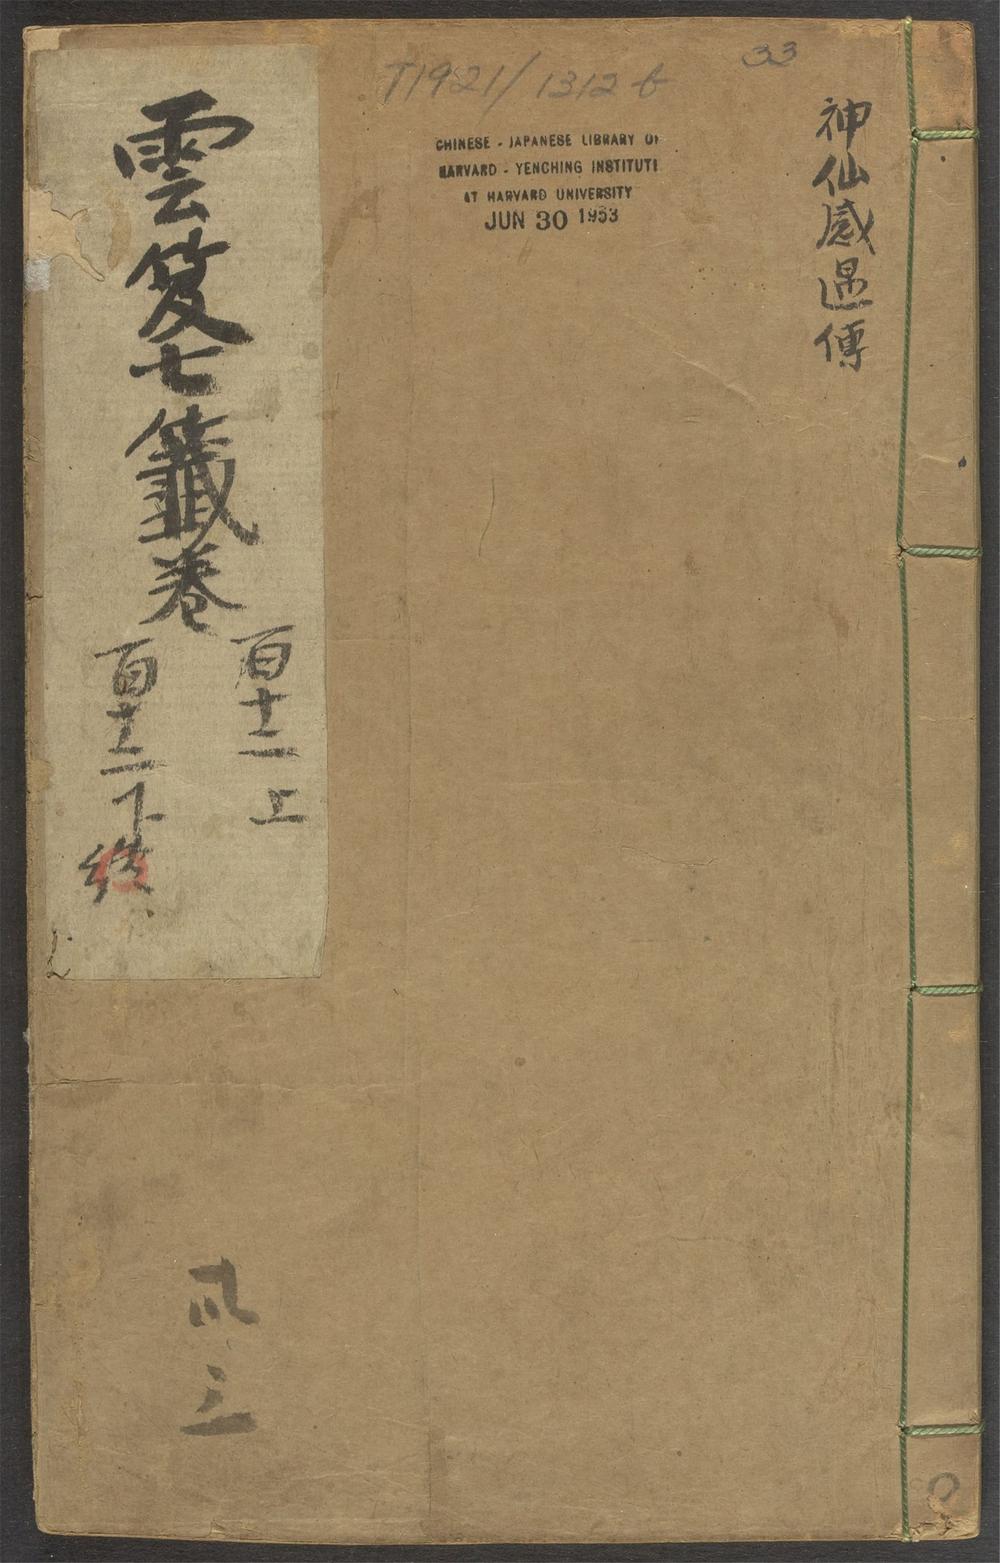 33
T1921/1312b
CHINESE - JAPANESE LIBRARY OF
HARVARD - YENCHING INSTITUTE
AT HARVARD UNIVERSITY
JUN 30 1953
神仙感遇傳
雲笈七籤卷
百十二上
百十二下終